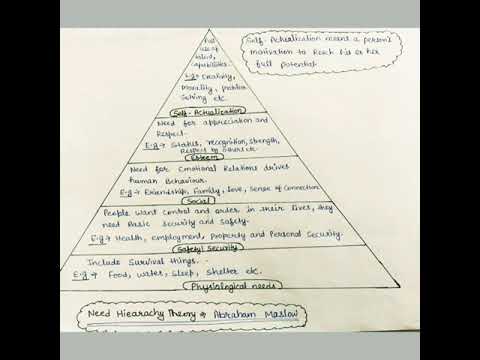 Self-Actualization meant a person's
motivation to Reach his or her
full potential.
Full
use of
talent,
capabilities.
E.g → Creativity,
Morality, problem
solving etc.
Self-Actualization
Need for appreciation and
Respect.
E.g → Status, recognition, strength,
Respect by others etc.
Esteem
Need for Emotional Relations drives
human Behaviour.
E.g → Friendship, Family, Love, Sense of Connection.
Social
People want control and order in their lives, they
need Basic security and safety.
E.g → Health, employment, Property and Personal Security.
Safety/Security
Include Survival things.
E.g → Food, water, sleep, shelter etc.
Physiological needs
Need Hiearachy Theory → Abraham Maslow